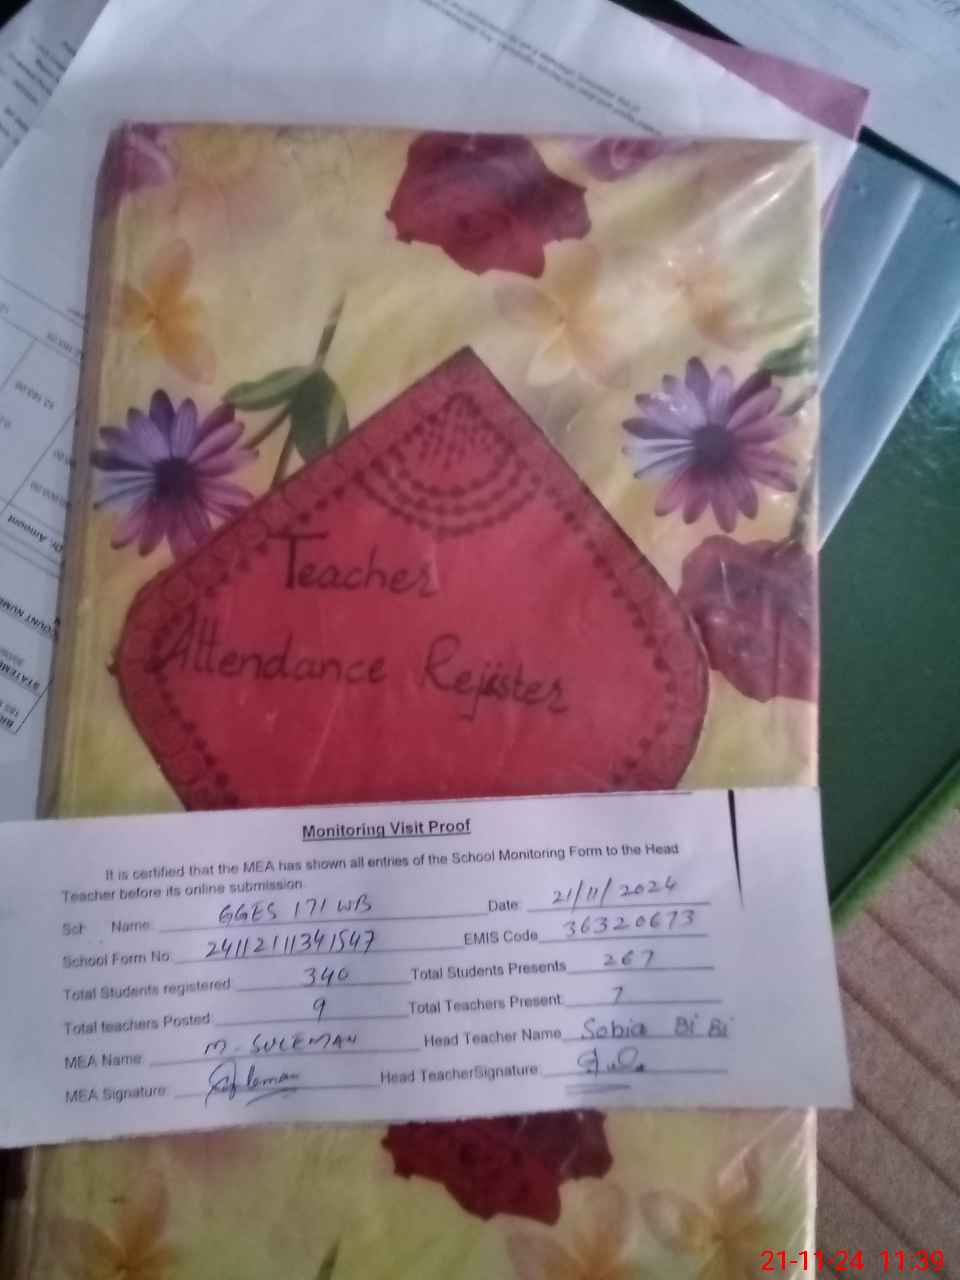 Teacher
Attendance Rejister
Monitoring Visit Proof
It is certified that the MEA has shown all entries of the School Monitoring Form to the Head
Teacher before its online submission.
Sch Name: GGES 171 WB Date: 21/11/2024
School Form No: 24112111341547 EMIS Code 36320673
Total Students registered: 340 Total Students Presents 267
Total teachers Posted: 9 Total Teachers Present: 7
MEA Name: M. SULEMAN Head Teacher Name Sobia Bi Bi
MEA Signature: Head TeacherSignature:
Dr. Amount
21-11-24 11:39